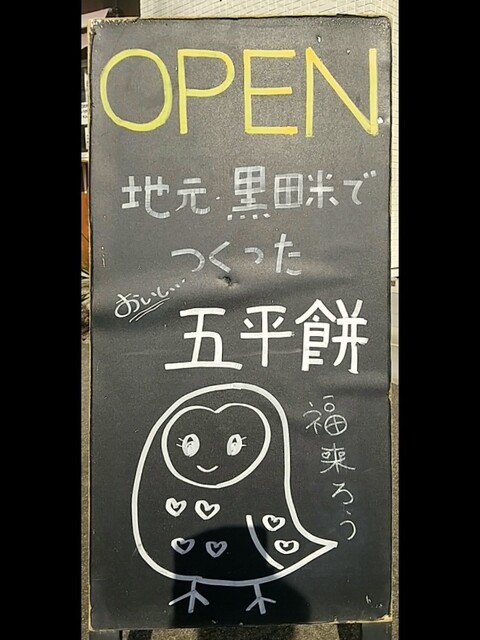 OPEN
地元・黒田米で
つくった
おいしい
五平餅
福来ろう